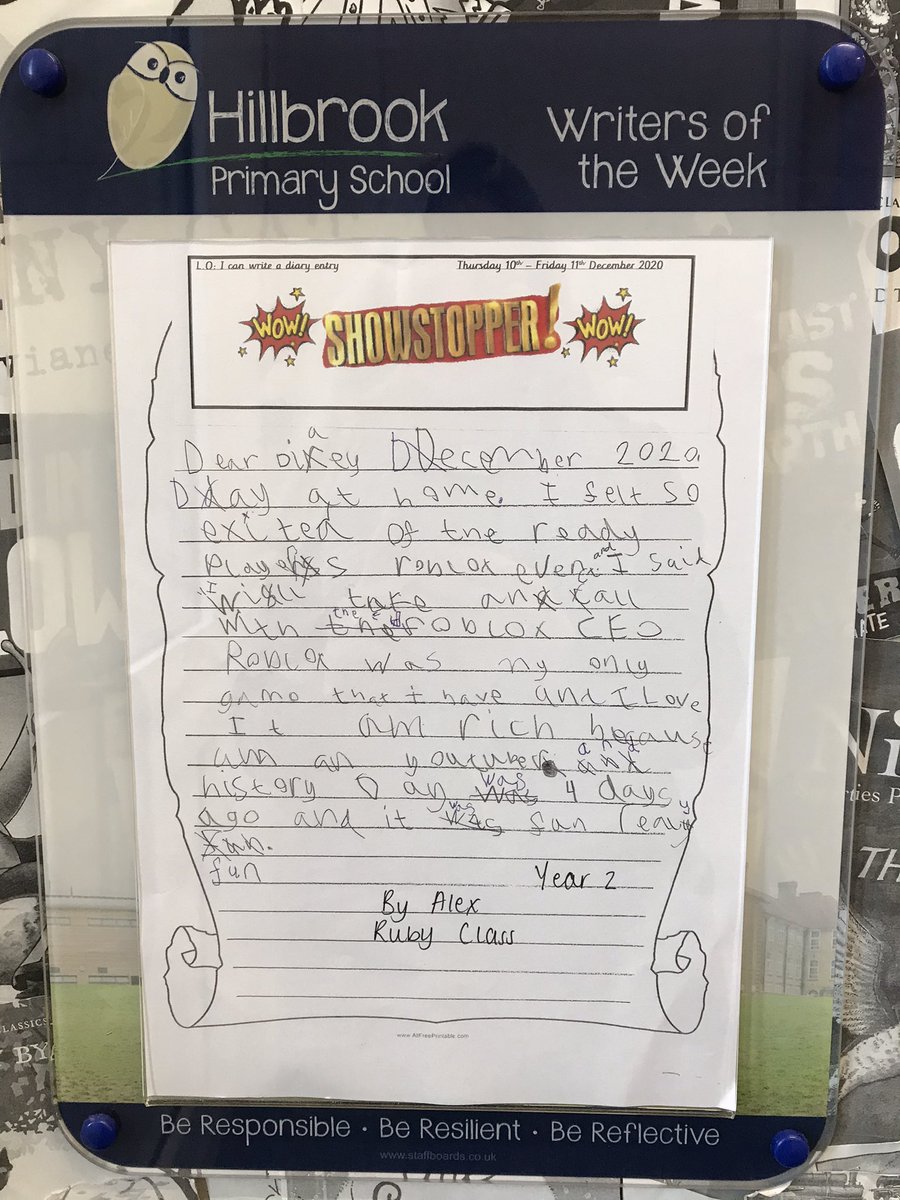 Hillbrook
Primary School
Writers of
the Week
L.O: I can write a diary entry Thursday 10th – Friday 11th December 2020
WOW! SHOWSTOPPER! WOW!
Dear diarey December 2020
Day at home. I felt so
exited of the ready
players roblox event and I said
"I will take a call
with the roblox CEO
Roblox was my only
game that I have and I Love
It am rich because
um an youtuber and
history day was 4 days
ago and it was fun
fun
Year 2
By Alex
Ruby Class
www.AllFreePrintable.com
Be Responsible · Be Resilient · Be Reflective
www.staffboards.co.uk